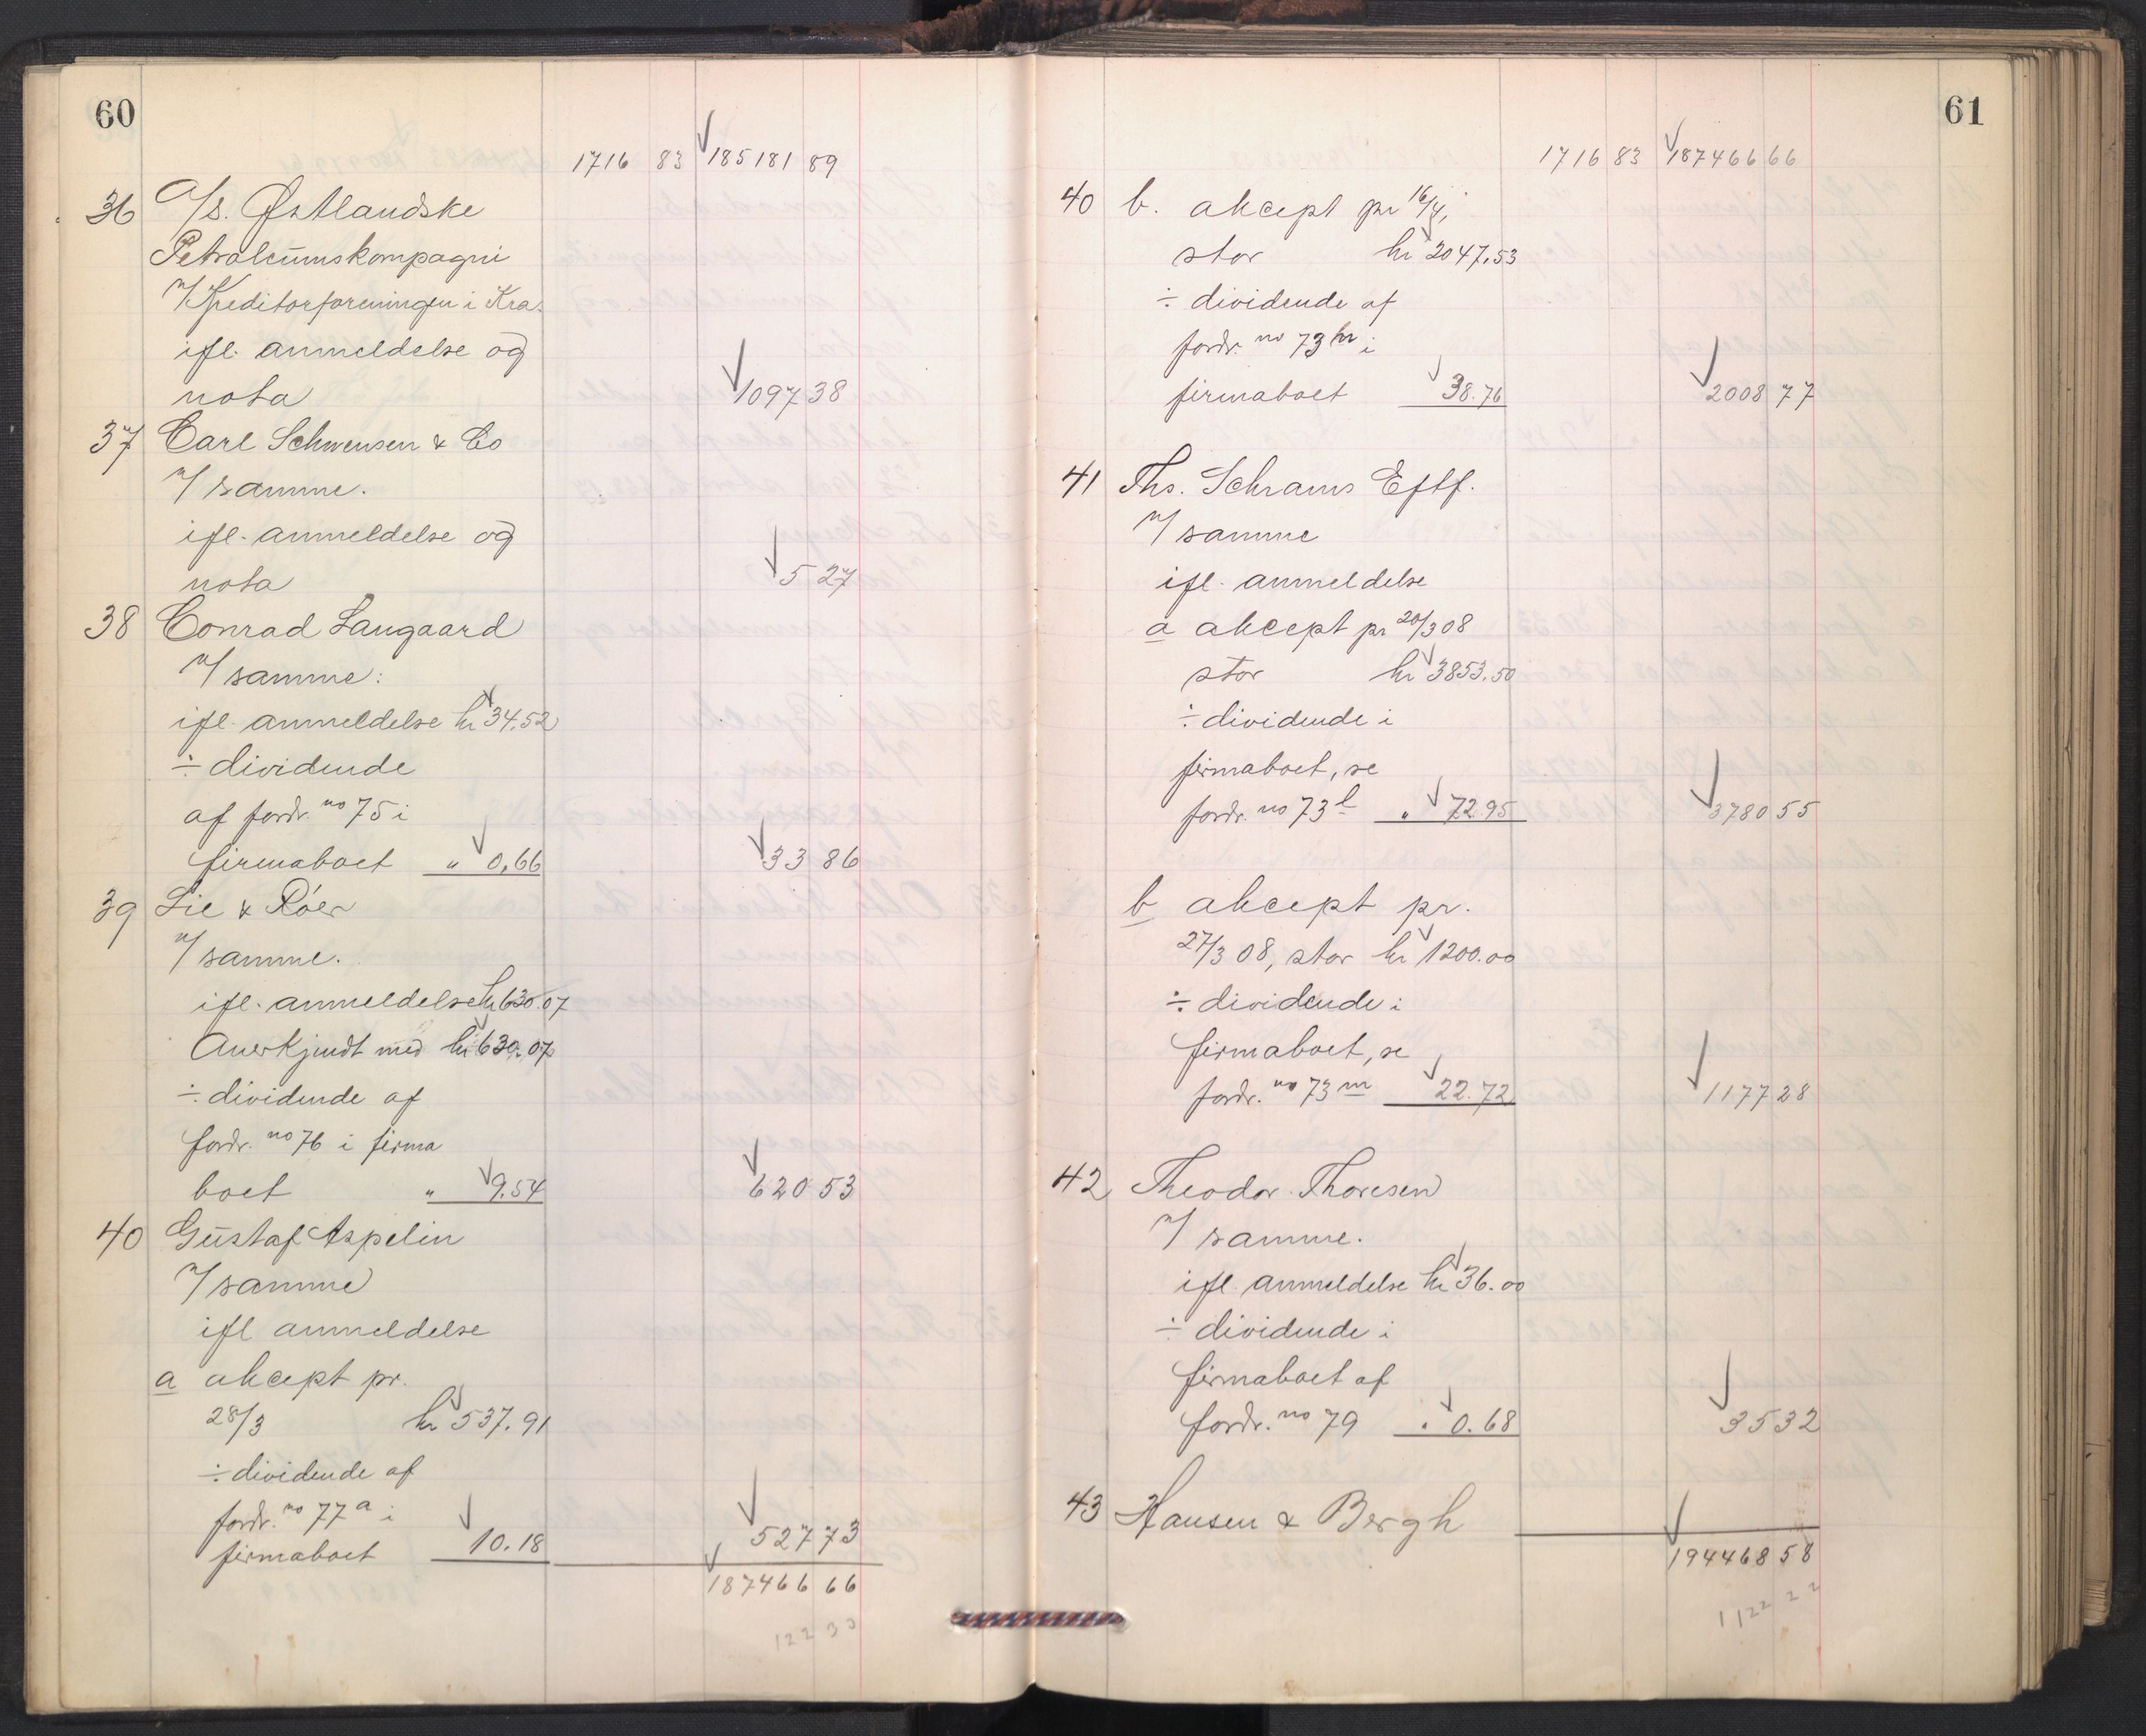 60
1716 83 185181 89
36 A/S. Østlandske
Petroleumskompagni
v/Kreditorforeningen i Kra.
ifl. anmeldelse og
nota 1097 38
37 Carl Schwensen & Co
v/ samme.
ifl. anmeldelse og
nota 5 27
38 Conrad Langaard
v/ samme:
ifl. anmeldelse kr 34.52
÷ dividende
af fordr. no 75 i
firmaboet „ 0,66 33 86
39 Lie & Róer
v/ samme.
ifl. anmeldelse kr 630.07
Anerkjendt med kr 630.07
÷ dividende af
fordr. no 76 i firma
boet „ 9.54 620 53
40 Gustaf Aspelin
v/ samme
ifl anmeldelse
a akcept pr.
28/3 kr 537.91
÷ dividende af
fordr. no 77 a i
firmaboet 10.18 527 73
187466 66
122 30
61
1716 83 187466 66
40 b. akcept pr 16/4,
stor kr 2047.53
÷ dividende af
fordr. no 73 i
firmaboet 38.76 2008 77
41 Ths. Schrams Eftf.
v/ samme
ifl. anmeldelse
a akcept pr 20/3 08
stor kr 3853.50
÷ dividende i
firmaboet, se
fordr. no 73 l „ 72.95 3780 55
b akcept pr.
27/3 08, stor kr 1200.00
÷ dividende i
firmaboet, se
fordr. no 73 m 22.72 1177 28
42 Theodor Thoresen
v/ samme.
ifl. anmeldelse kr 36.00
÷ dividende i
firmaboet af
fordr. no 79 „ 0.68 35 32
43 Hansen & Bergh
194468 58
1122 22